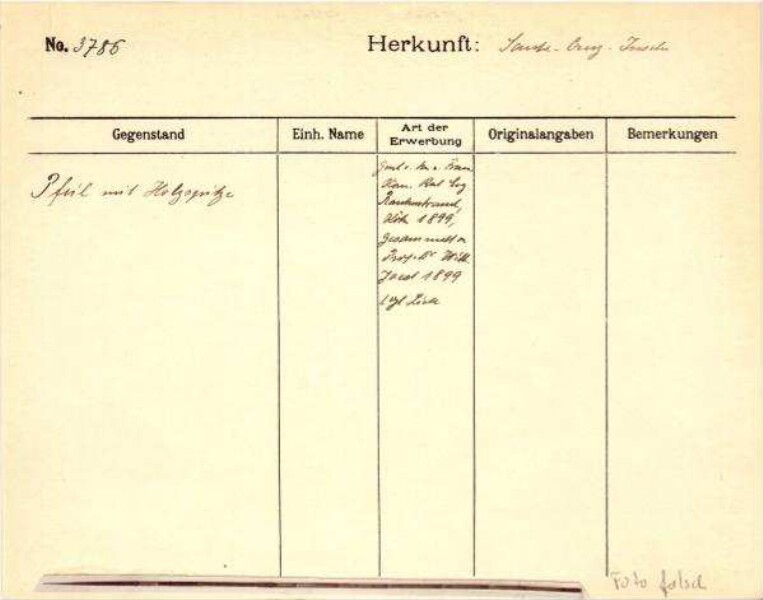 No. 3786
Herkunft: Santa-Cruz-Inseln
Gegenstand
Einh. Name
Art der Erwerbung
Originalangaben
Bemerkungen
Pfeil mit Holzspitze
Frau
Rautenstrauch,
Köln 1899,
gesammelt v.
Prof. Dr Wilh.
Joest 1899
Foto falsch